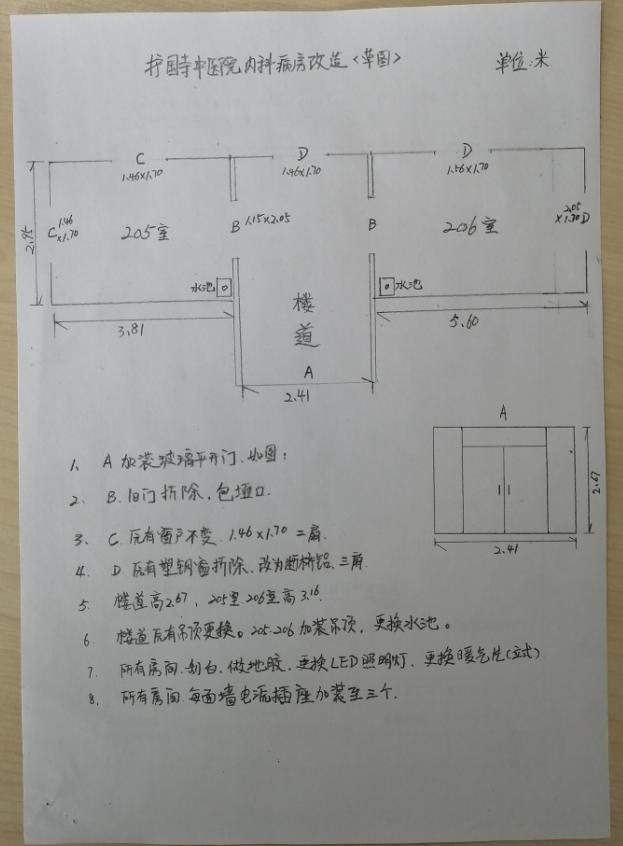 护国寺中医院内科病房改造〈草图〉 单位:米
C D D
1.46×1.70 1.46×1.70 1.56×1.70
C 1.46×1.70 205室 B 1.15×2.05 B 206室 2.05×1.70 D
2.95
水池 水池
3.81 楼道 5.60
A
2.41
A
2.67
2.41
1、A加装玻璃平开门.如图:
2、B.旧门拆除,包垭口.
3、C.瓦有窗户不变.1.46×1.70 二扇.
4、D.瓦有塑钢窗拆除、改为断桥铝、三扇.
5、楼道高2.67,205室206室高3.16.
6、楼道瓦有吊顶更换。205.206加装吊顶,更换水池。
7、所有房间.刮白、做地胶、更换LED照明灯、更换暖气片(立式)
8、所有房间.每面墙电流插座加装至三个.